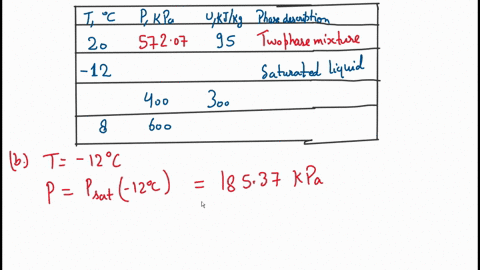 T, °C P, KPa u, KJ/kg Phase description
20 572.07 95 Two phase mixture
-12 Saturated liquid
400 300
8 600
(b.) T = -12°C
P = Psat (-12°C) = 185.37 KPa